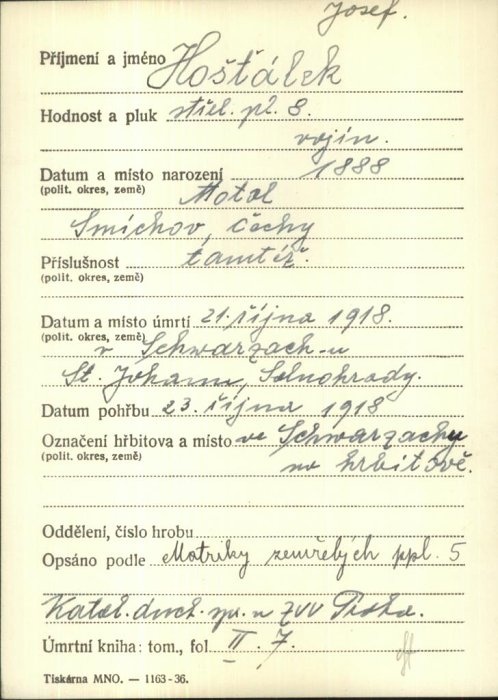 Josef.
Příjmení a jméno Hošťálek
Hodnost a pluk střel. pl. 8.
vojín.
Datum a místo narození 1888
(polit. okres, země) Motol
Smíchov, Čechy
Příslušnost tamtéž.
(polit. okres, země)
Datum a místo úmrtí 21. října 1918.
(polit. okres, země) v Schwarzach-u
St. Johann, Solnohrady.
Datum pohřbu 23. října 1918
Označení hřbitova a místo ve Schwarzachu
(polit. okres, země) na hřbitově.
Oddělení, číslo hrobu
Opsáno podle Matriky zemřelých ppl. 5
Katol. duch. spr. u ZVV Praha.
Úmrtní kniha: tom., fol II. 7.
Tiskárna MNO. — 1163-36.